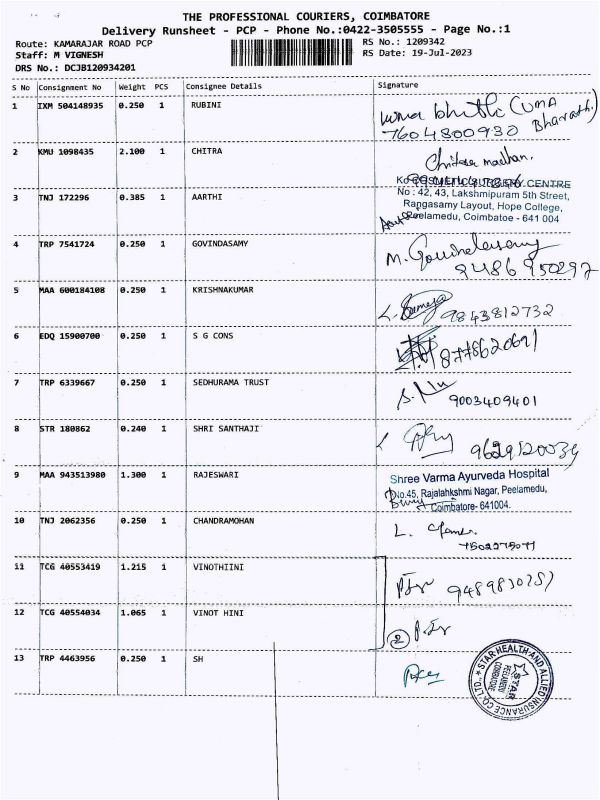 THE PROFESSIONAL COURIERS, COIMBATORE
Delivery Runsheet - PCP - Phone No.:0422-3505555 - Page No.:1
Route: KAMARAJAR ROAD PCP RS No.: 1209342
Staff: M VIGNESH RS Date: 19-Jul-2023
DRS No.: DCJB120934201
S No Consignment No Weight PCS Consignee Details Signature
1 IXM 504148935 0.250 1 RUBINI (UMA Bharath.)
7604800930
2 KMU 1098435 2.100 1 CHITRA Chitra madhan.
CENTRE
3 TNJ 172296 0.385 1 AARTHI No : 42, 43, Lakshmipuram 5th Street,
Rangasamy Layout, Hope College,
Peelamedu, Coimbatoe - 641 004
4 TRP 7541724 0.250 1 GOVINDASAMY M. Govindasamy
9486950297
5 MAA 600184108 0.250 1 KRISHNAKUMAR 9843812732
6 EDQ 15900700 0.250 1 S G CONS
7 TRP 6339667 0.250 1 SEDHURAMA TRUST 9003409401
8 STR 180862 0.240 1 SHRI SANTHAJI
9 MAA 943513980 1.300 1 RAJESWARI Shree Varma Ayurveda Hospital
No.45, Rajalahkshmi Nagar, Peelamedu,
Coimbatore- 641004.
10 TNJ 2062356 0.250 1 CHANDRAMOHAN L.
11 TCG 40553419 1.215 1 VINOTHIINI
12 TCG 40554034 1.065 1 VINOT HINI 2
13 TRP 4463956 0.250 1 SH
STAR HEALTH AND ALLIED INSURANCE CO. LTD.
STAR
PEELAMEDU
COIMBATORE